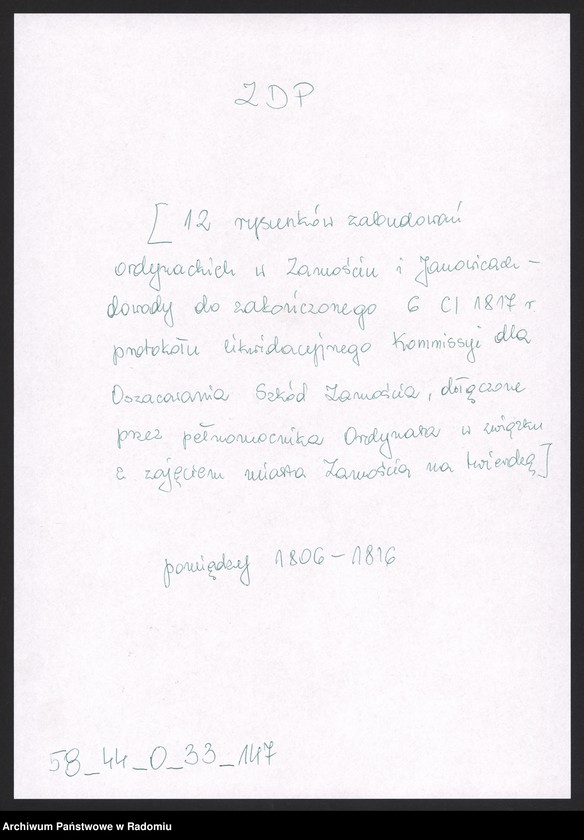 ZDP
[ 12 rysunków zabudowań
ordynackich w Zamościu i Janowicach -
dowody do zakończonego 6 CI 1817 r.
protokołu likwidacyjnego Kommissyi dla
Oszacowania Szkód Zamościa, dołączone
przez pełnomocnika Ordynata w związku
z zajęciem miasta Zamościa na twierdzę]
pomiędzy 1806-1816
58_44_0_33_147
Archiwum Państwowe w Radomiu